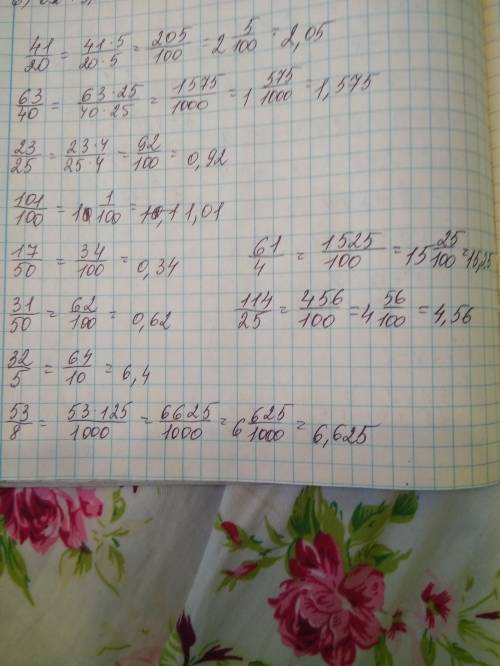 41/20 = 41·5/20·5 = 205/100 = 2 5/100 = 2,05
63/40 = 63·25/40·25 = 1575/1000 = 1 575/1000 = 1,575
23/25 = 23·4/25·4 = 92/100 = 0,92
101/100 = 1 1/100 = 1,01
17/50 = 34/100 = 0,34
61/4 = 1525/100 = 15 25/100 = 15,25
31/50 = 62/100 = 0,62
114/25 = 456/100 = 4 56/100 = 4,56
32/5 = 64/10 = 6,4
53/8 = 53·125/1000 = 6625/1000 = 6 625/1000 = 6,625